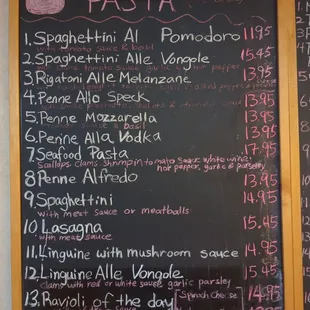 PASTA
1. Spaghettini Al Pomodoro 11.95
with tomato sauce & basil
2. Spaghettini Alle Vongole 15.45
3. Rigatoni Alle Melanzane 13.95
4. Penne Allo Speck 13.95
5. Penne Mozzarella 13.95
sauce & basil
6. Penne Alla Vodka 13.95
7. Seafood Pasta 17.95
Scallops clams shrimp in tomato sauce white wine
hot pepper, garlic & parsley
8 Penne Alfredo 13.95
9. Spaghettini 14.95
with meat sauce or meatballs
10 Lasagna 15.45
with meat sauce
11. Linguine with mushroom sauce 14.95
12. Linguine Alle Vongole 15.45
clams with red or white sauce garlic parsley
13. Ravioli of the day [Spinach Cheese 14.95